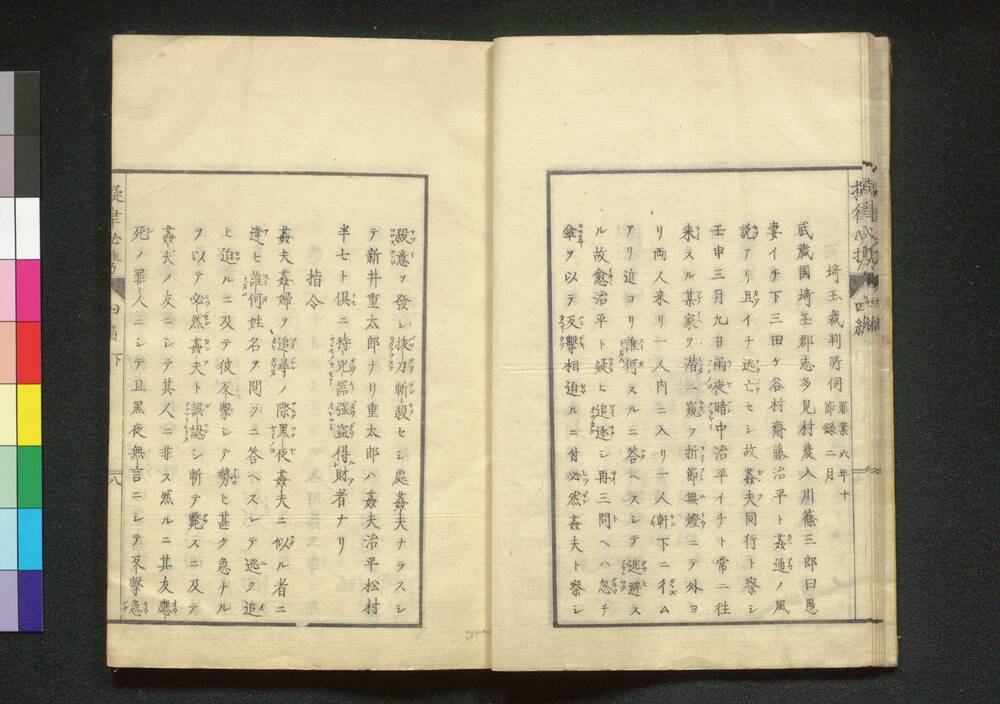 埼玉裁判所伺 罪案 六年十
節録 二月
武藏國埼玉郡志多見村農入川篠三郎曰愚
妻イチ下三田ケ谷村齋藤治平ト姦通ノ風
説アリ且イチ逃亡セシ故姦夫同行ト察シ
壬申三月九日雨夜暗中治平イチト常ニ往
来スル某家ヲ潜ニ窺フ折節無燈ニテ外ヨ
リ両人来リ一人内ニ入リ一人軒下ニ佇ム
アリ近ヨリ誰何スルニ答ヘスシテ逃避ス
ル故愈治平ト疑ヒ追逐シ再三問ヘハ忽チ
傘ヲ以テ反撃相迫ルニ付必然姦夫ト察シ
殺意ヲ發シ拔刀斬殺セシ處姦夫ナラスシ
テ新井重太郎ナリ重太郎ハ姦夫治平松村
半七ト倶ニ持兇器强盗得財者ナリ
指令
姦夫姦婦ヲ追尋ノ際黒夜姦夫ニ似ル者ニ
逢ヒ誰何姓名ヲ問フニ答ヘスシテ逃ク追
ヒ迫ルニ及テ彼反撃シテ勢ヒ甚タ急ナル
ヲ以テ必然姦夫ト誤認シ斬テ斃スニ及テ
姦夫ノ友ニシテ其人ニ非ス然ルニ其友應
死ノ罪人ニシテ且黒夜無言ニシテ反撃急
擬律必携 四編 下
八